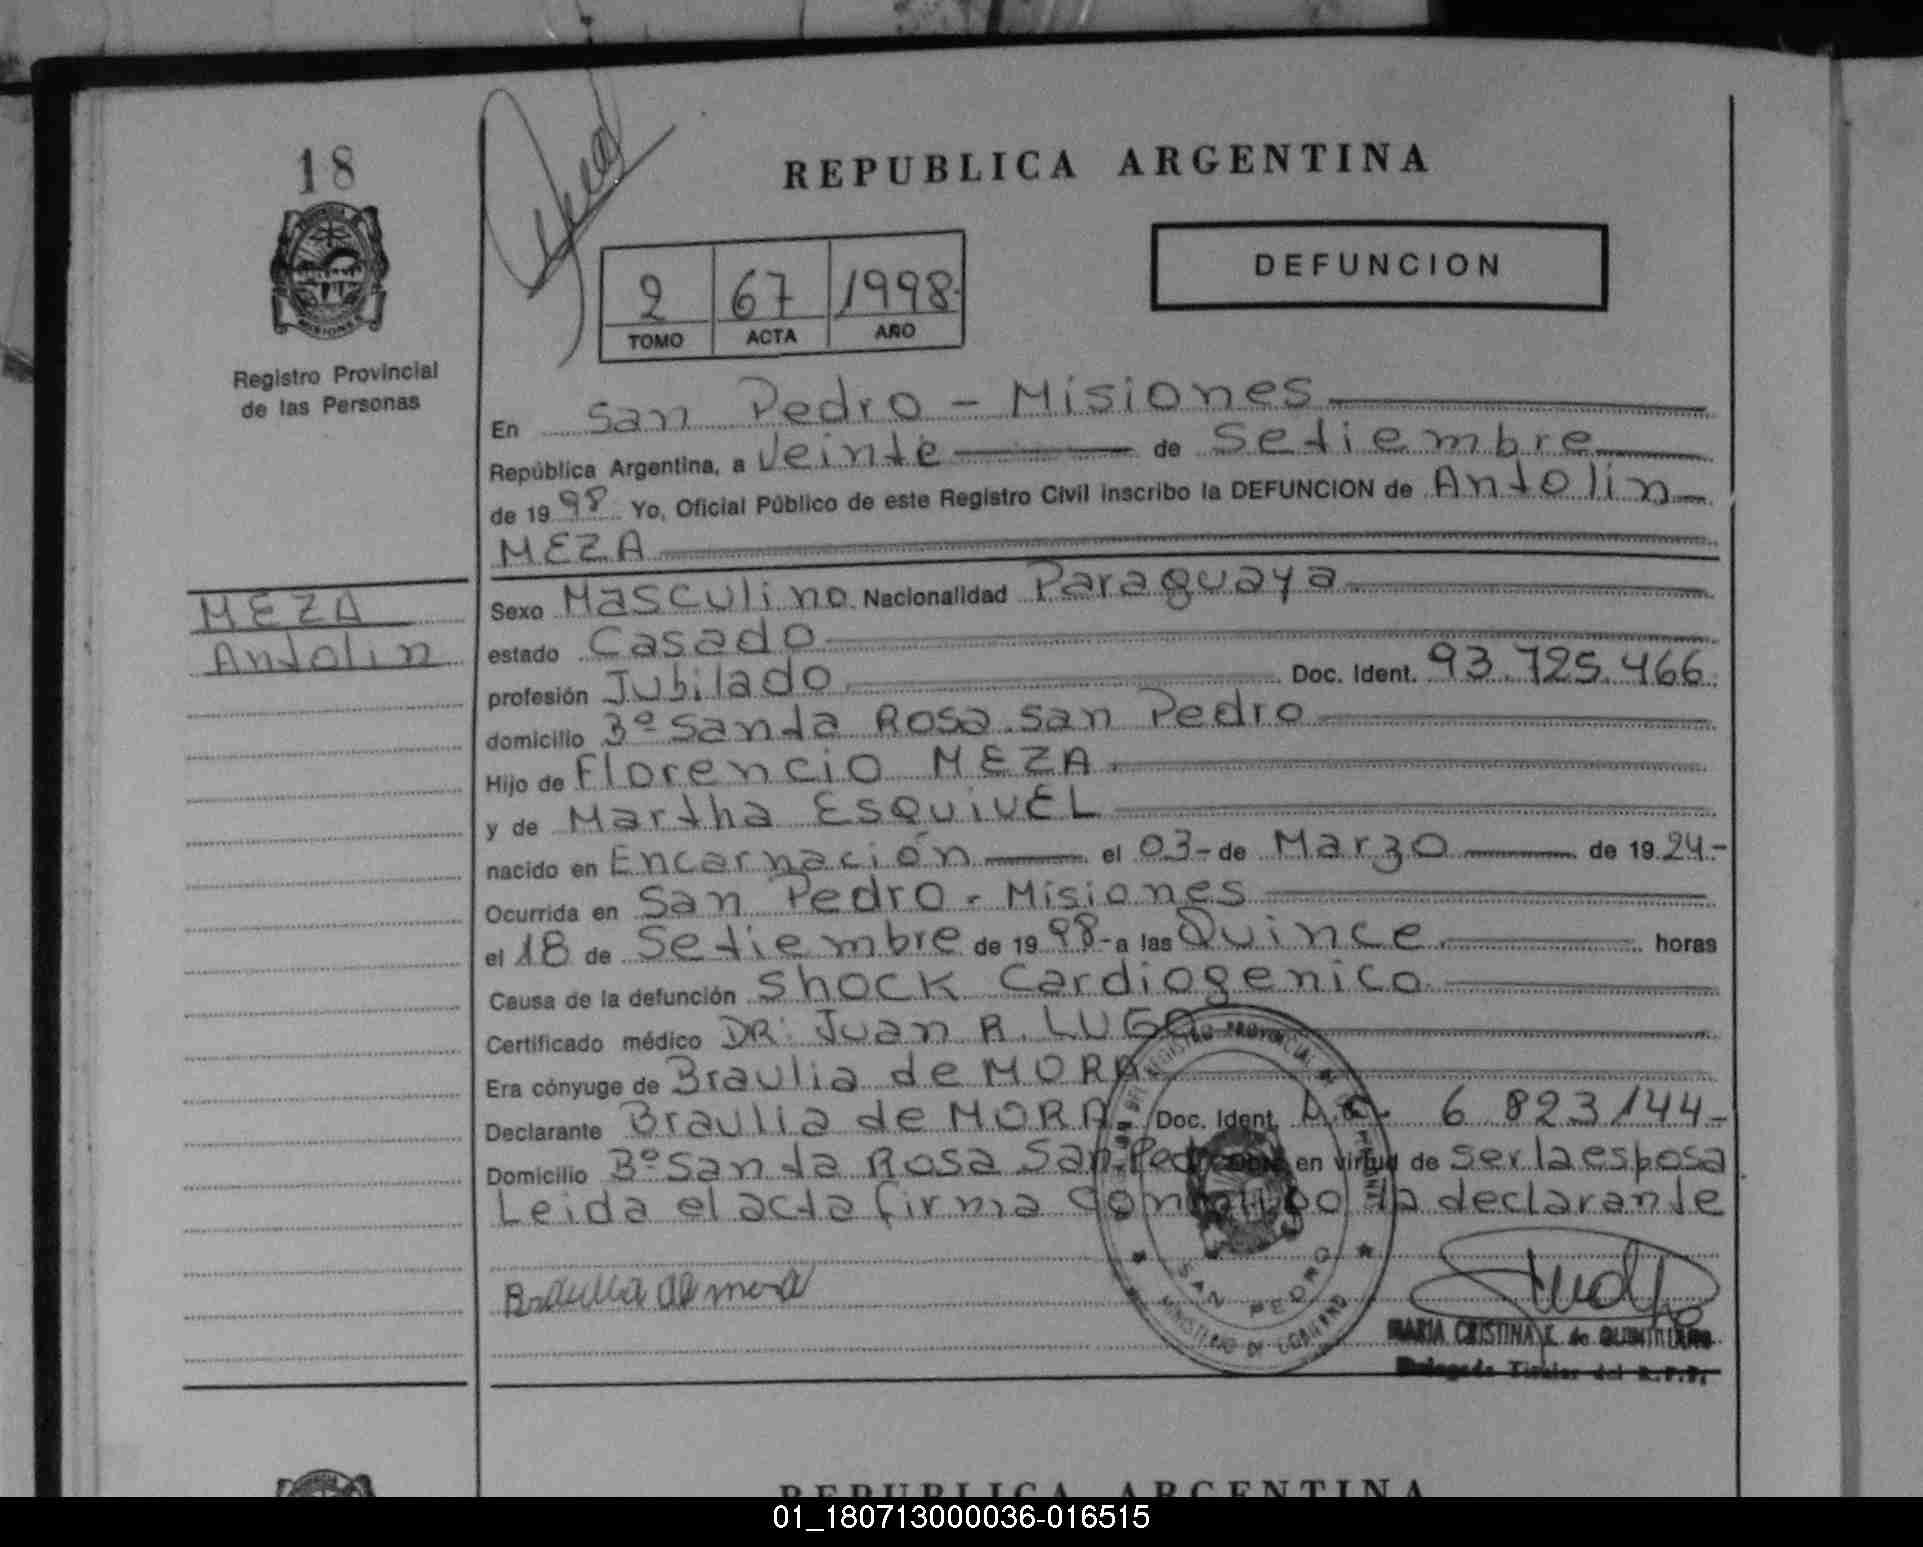 18
REPUBLICA ARGENTINA
DEFUNCION
2 67 1998
TOMO ACTA AÑO
Registro Provincial
de las Personas
En San Pedro - Misiones
República Argentina, a Veinte de Setiembre
de 1998 Yo, Oficial Público de este Registro Civil inscribo la DEFUNCION de Antolin
MEZA
MEZA
Antolin
Sexo Masculino Nacionalidad Paraguaya
estado Casado
profesión Jubilado Doc. Ident. 93.725.466
domicilio Bº Santa Rosa San Pedro
Hijo de Florencio MEZA
y de Martha ESQUIVEL
nacido en Encarnación el 03- de Marzo de 1924.-
Ocurrida en San Pedro - Misiones
el 18 de Setiembre de 1998- a las Quince horas
Causa de la defunción Shock Cardiogenico
Certificado médico DR: Juan R. LUGO
Era cónyuge de Braulia de MORA
Declarante Braulia de MORA Doc. Ident. 6 823144-
Domicilio Bº Santa Rosa San Pedro en virtud de ser la esposa
Leida el acta firma conmigo la declarante
Braulia de mora
SAN PEDRO
MINISTERIO DE GOBIERNO
MARIA CRISTINA de
Delegada Titular del R.P.P.
REPUBLICA ARGENTINA
01_180713000036-016515